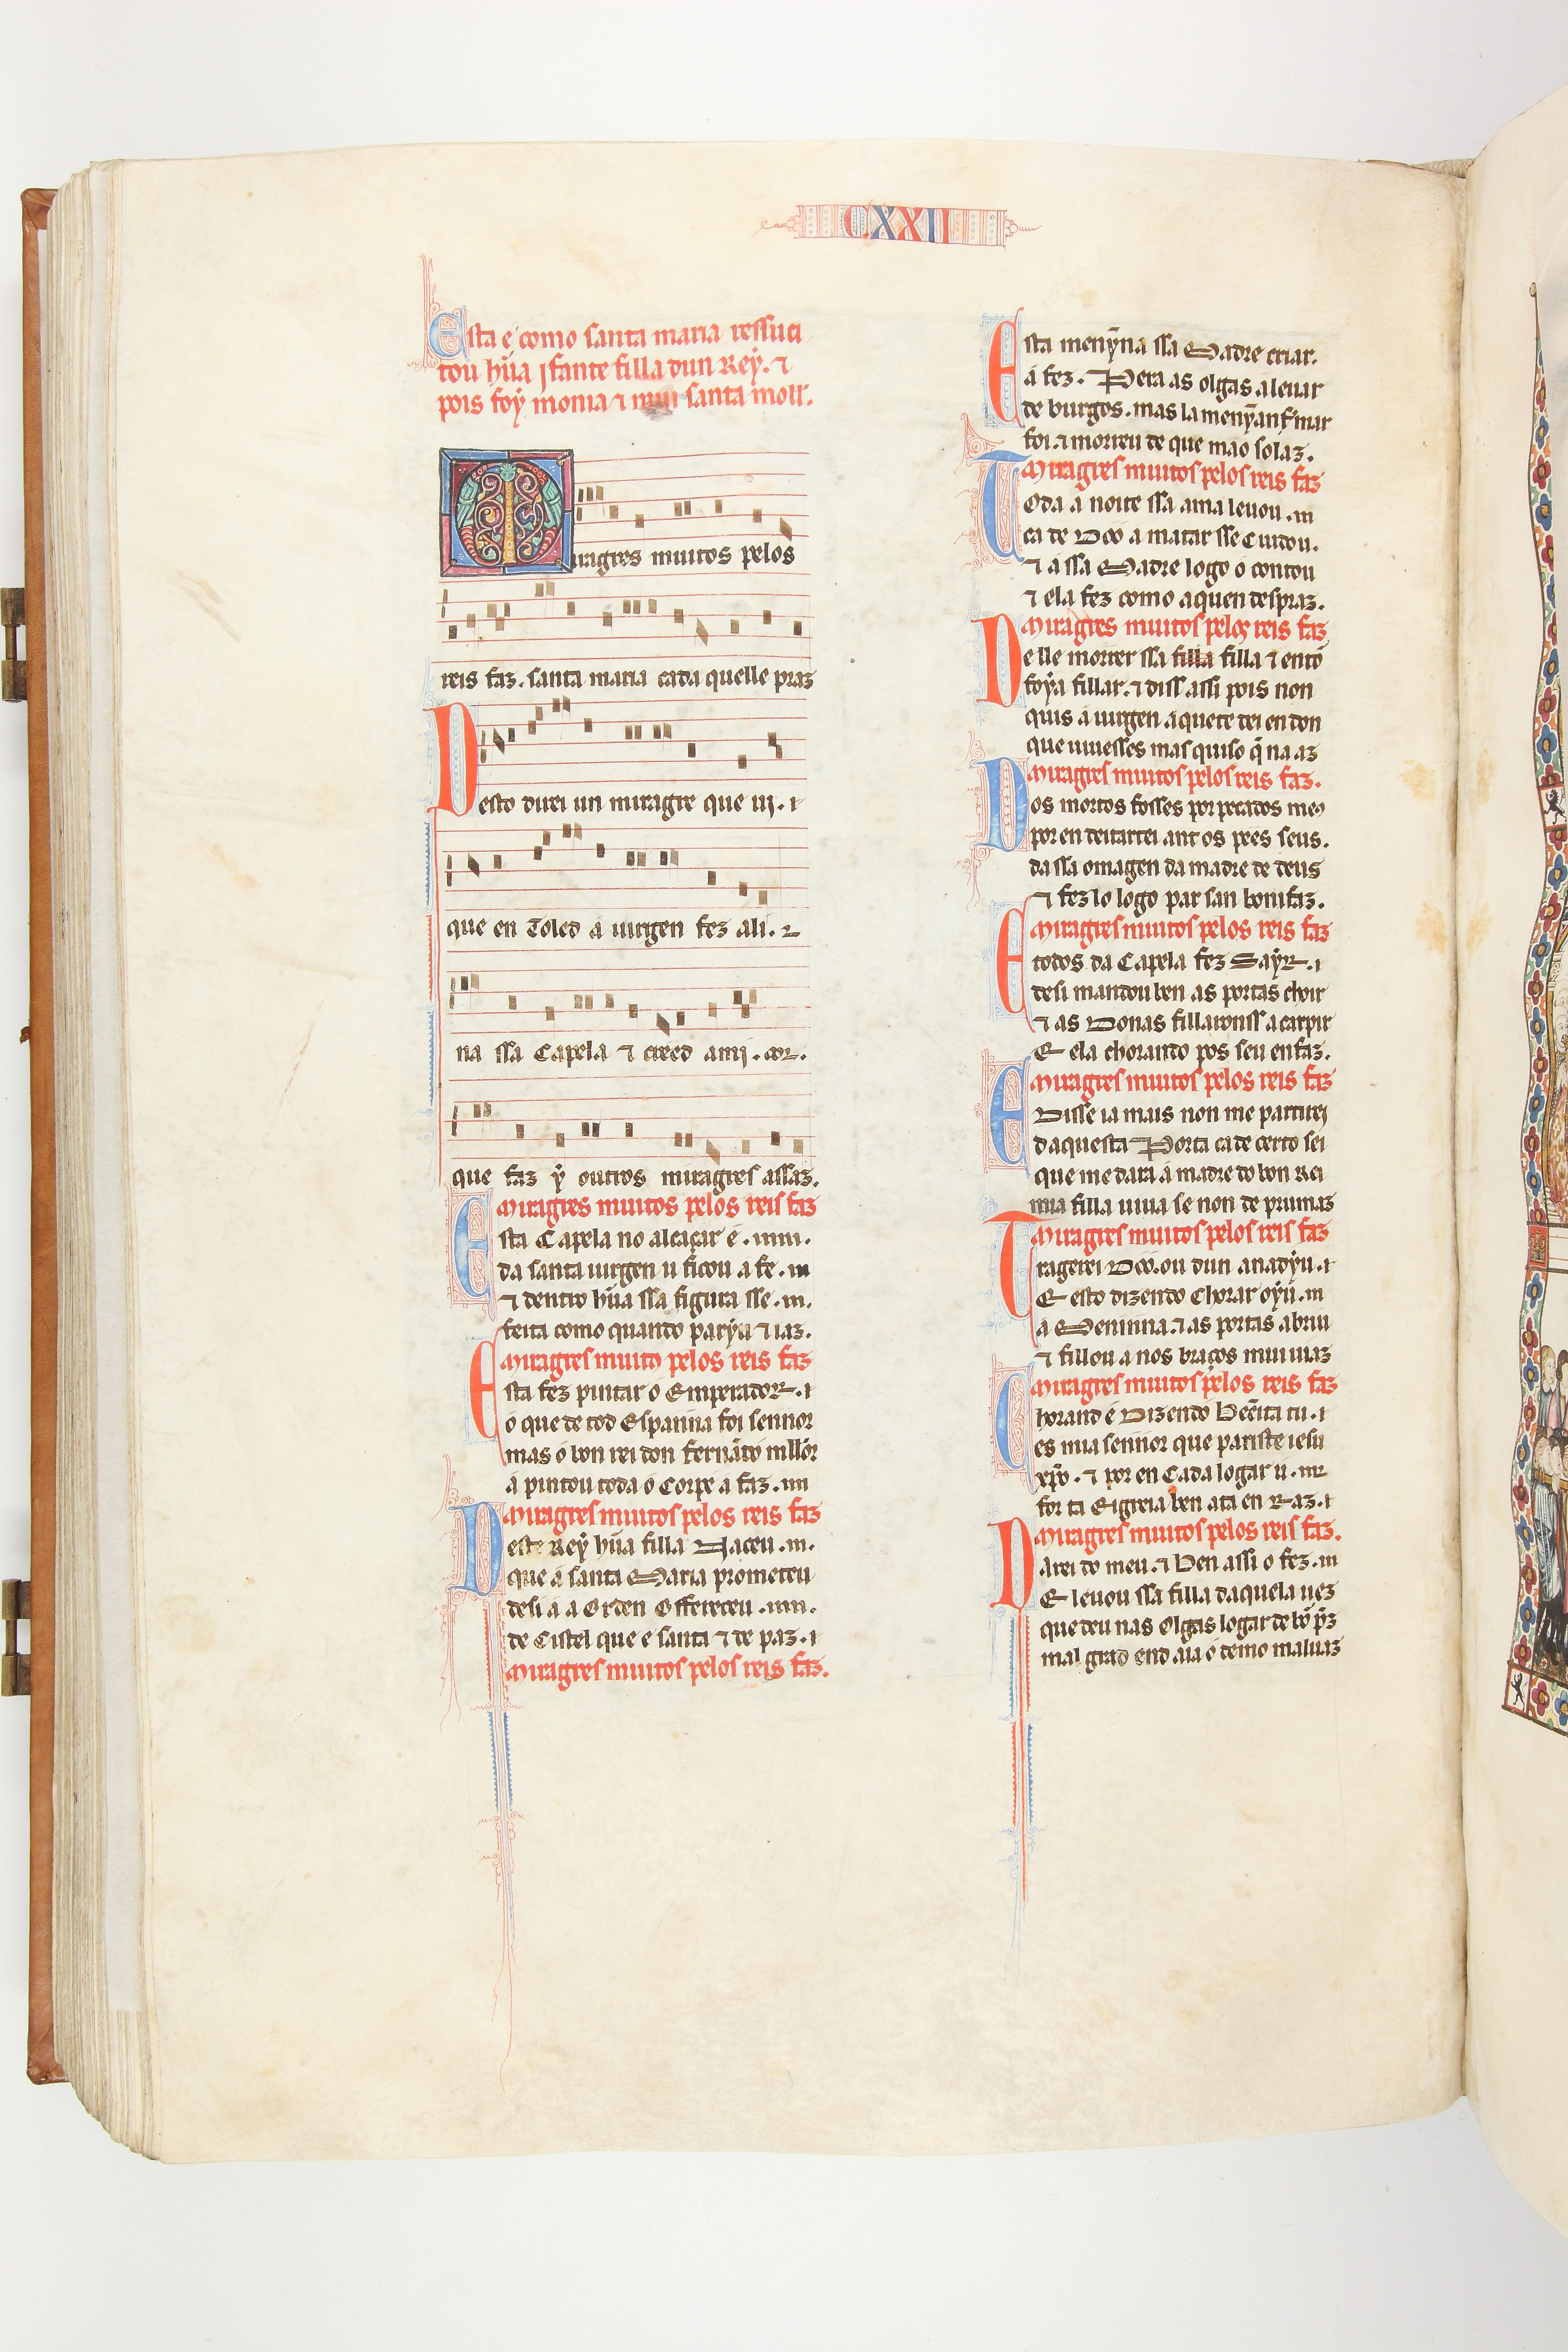 CXXII
Esta é como santa maria ressuci
tou hũa jfante filla dun Rey. ⁊
pois foy monia ⁊ mui santa moll'.
Miragres muitos pelos
reis faz. santa maria cada quelle praz
Desto direi un miragre que ui. ı
que en Toled a uirgen fez ali. ⁊
na ssa Capela ⁊ creed a mj. cor.
que faz ẏ outros miragres assaz.
Miragres muitos pelos reis faz
Esta Capela no alcaçar é. ıııı.
da santa uirgen u ficou a fe. ııı
⁊ dentro hũa ssa figura sse. ııı.
feita como quando parẏu ⁊ iaz.
Miragres muitos pelos reis faz
Esta fez pintar o Emperador. ı
o que de tod Espanna foi sennor
mas o bon rei don fernãdo mllor
a pintou toda o Corpe a faz. ıııı
Miragres muitos pelos reis faz
Deste Reẏ hũa filla Naceu. ııı.
que a santa Maria prometeu
desi a a Orden Offereceu. ıııı.
de Cistel que e santa ⁊ de paz. ı
Miragres muitos pelos reis faz.
Esta menỹna ssa Madre criar.
a fez. Pera as olgas a leuar
de burgos. mas la menỹa nf'mar
foi. ⁊ morreu de que mao solaz.
Miragres muitos pelos reis faz
Toda a noite ssa ama leuou. ııı
ca de Doo a matar sse Cuidou.
⁊ a ssa Madre logo o contou
⁊ ela fez como a quen despraz.
Miragres muitos pelos reis faz
Delle morrer ssa filla filla ⁊ entõ
foẏa fillar. ⁊ diss assi pois non
quis a uirgen a que te dei en don
que uiuesses mas quiso q̃ na az
Miragres muitos pelos reis faz.
Dos mortos fosses por pecados me9
poren deitartei ant os pees seus.
da ssa omagen da madre de deus
⁊ fez lo logo par san bonifaz.
Miragres muitos pelos reis faz
E todos da Capela fez Saẏr. ı
desi mandou ben as portas choir
⁊ as Donas fillaronss a carpir
E ela chorando pos seu enfaz.
Miragres muitos pelos reis faz
E Disse ia mais non me partirei
daquesta Porta ca de certo sei
que me dara a madre do bon Rei
mia filla uiua se non de prumaz
Miragres muitos pelos reis faz
Tragerei Doo. ou dun anadẏu. ı
E esto dizendo Chorar oẏu. ııı
a Meninna. ⁊ as portas abriu
⁊ fillou a nos braços mui uiaz
Miragres muitos pelos reis faz
Chorand e Dizendo Beẽita tu. ı
es mia sennor que pariste iesu
xp̃o. ⁊ por en Cada logar u. ııı
for ta Eigreia ben ata en Raz. ı
Miragres muitos pelos reis faz.
Darei do meu. ⁊ Ben assi o fez. ııı
E leuou ssa filla daquela uez
que deu nas Olgas logar de bõ p̃z
mal grad end aia o demo maluaz